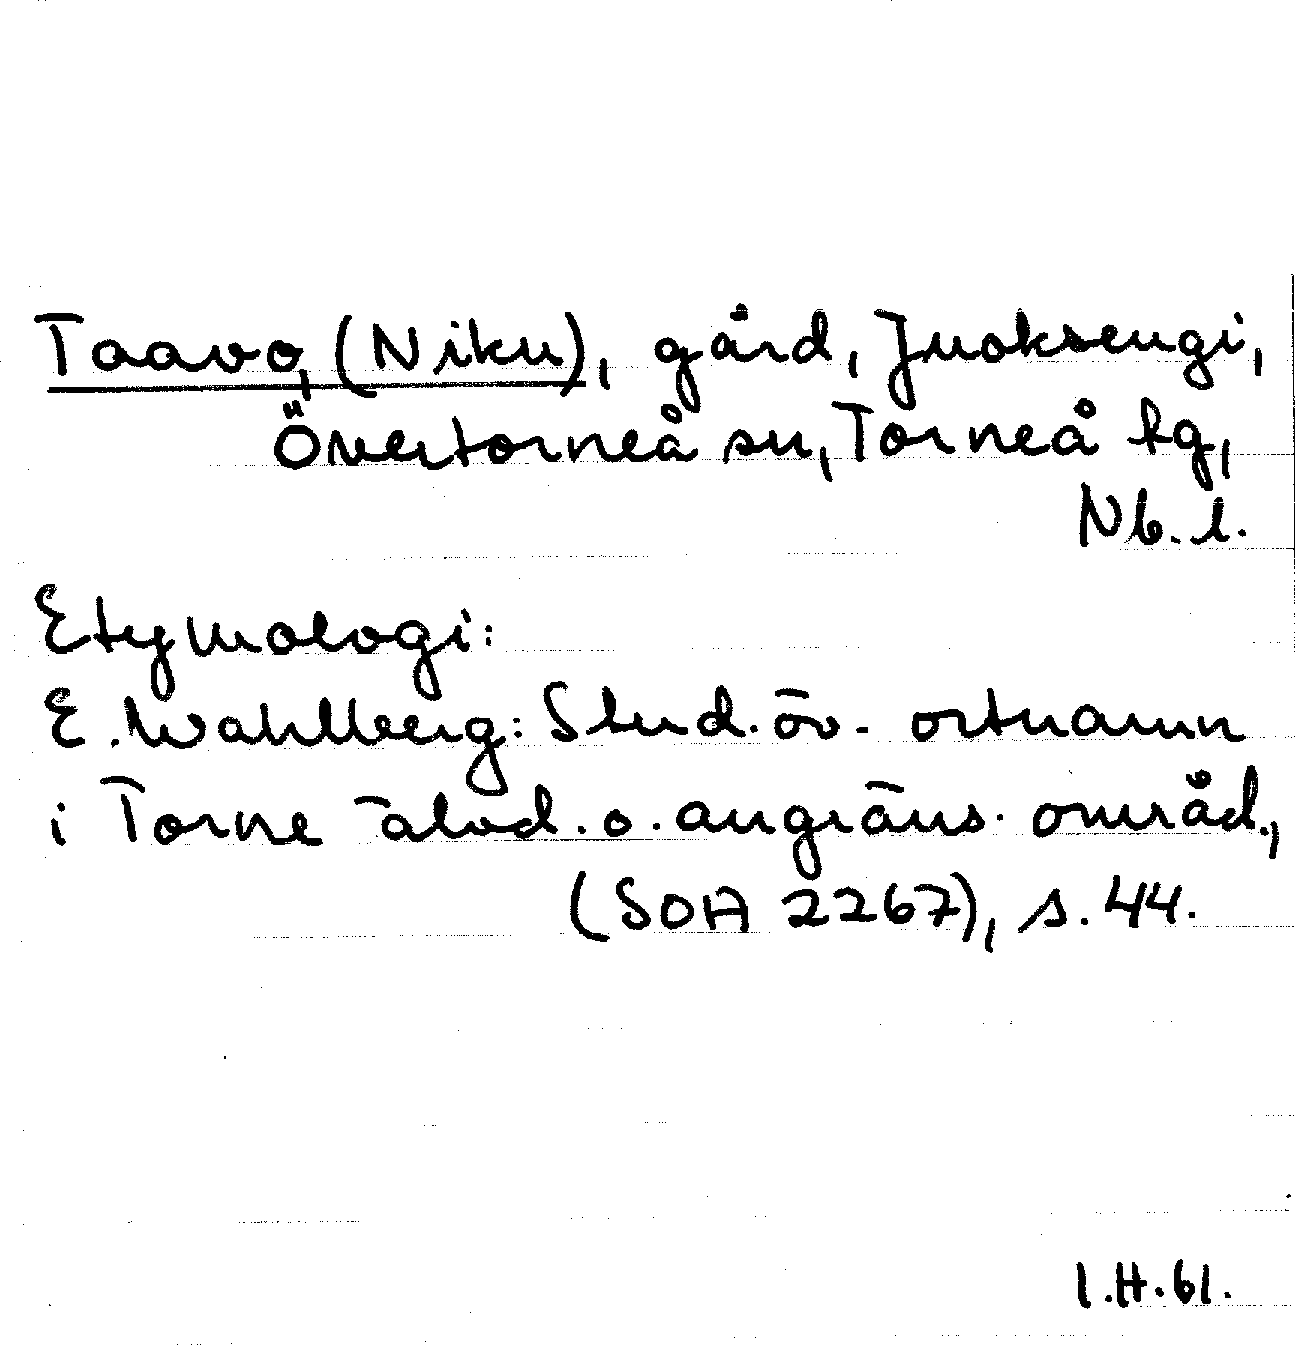 Taavo, (Niku), gård, Juoksengi,
Övertorneå sn, Torneå tg,
Nb. l.
Etymologi:
E. Wahlberg: Stud. öv. ortnamn
i Torne älvd. o. angräns. områd.,
(SOA 2267), s. 44.
I.H. 61.